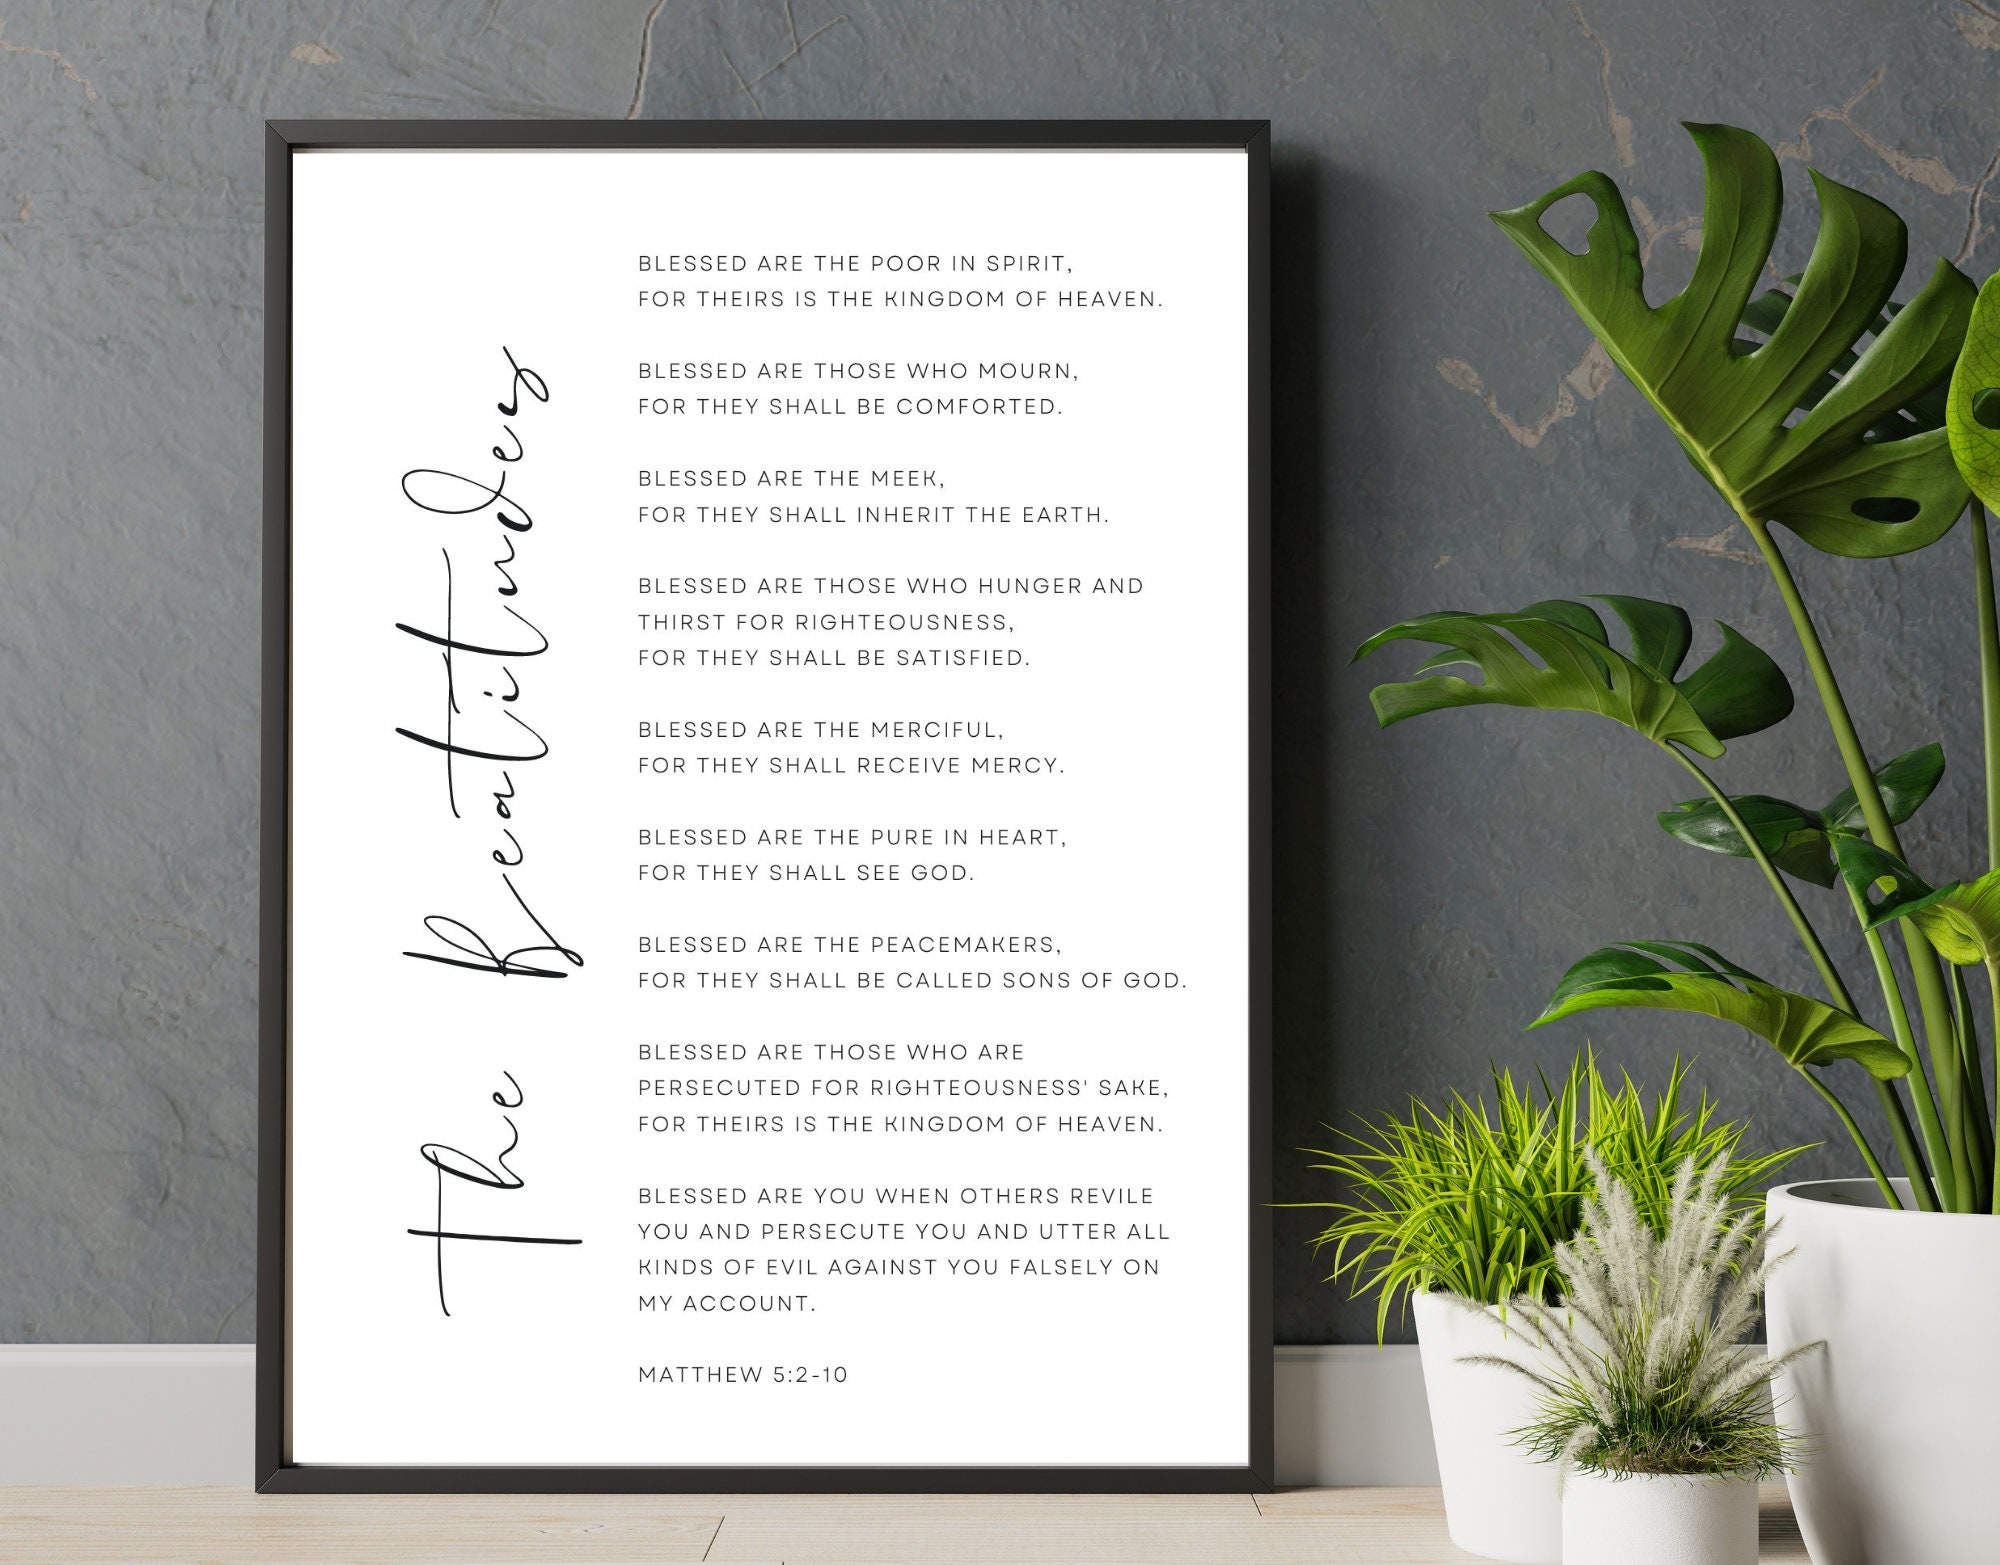 The Beatitudes
BLESSED ARE THE POOR IN SPIRIT,
FOR THEIRS IS THE KINGDOM OF HEAVEN.
BLESSED ARE THOSE WHO MOURN,
FOR THEY SHALL BE COMFORTED.
BLESSED ARE THE MEEK,
FOR THEY SHALL INHERIT THE EARTH.
BLESSED ARE THOSE WHO HUNGER AND
THIRST FOR RIGHTEOUSNESS,
FOR THEY SHALL BE SATISFIED.
BLESSED ARE THE MERCIFUL,
FOR THEY SHALL RECEIVE MERCY.
BLESSED ARE THE PURE IN HEART,
FOR THEY SHALL SEE GOD.
BLESSED ARE THE PEACEMAKERS,
FOR THEY SHALL BE CALLED SONS OF GOD.
BLESSED ARE THOSE WHO ARE
PERSECUTED FOR RIGHTEOUSNESS' SAKE,
FOR THEIRS IS THE KINGDOM OF HEAVEN.
BLESSED ARE YOU WHEN OTHERS REVILE
YOU AND PERSECUTE YOU AND UTTER ALL
KINDS OF EVIL AGAINST YOU FALSELY ON
MY ACCOUNT.
MATTHEW 5:2-10